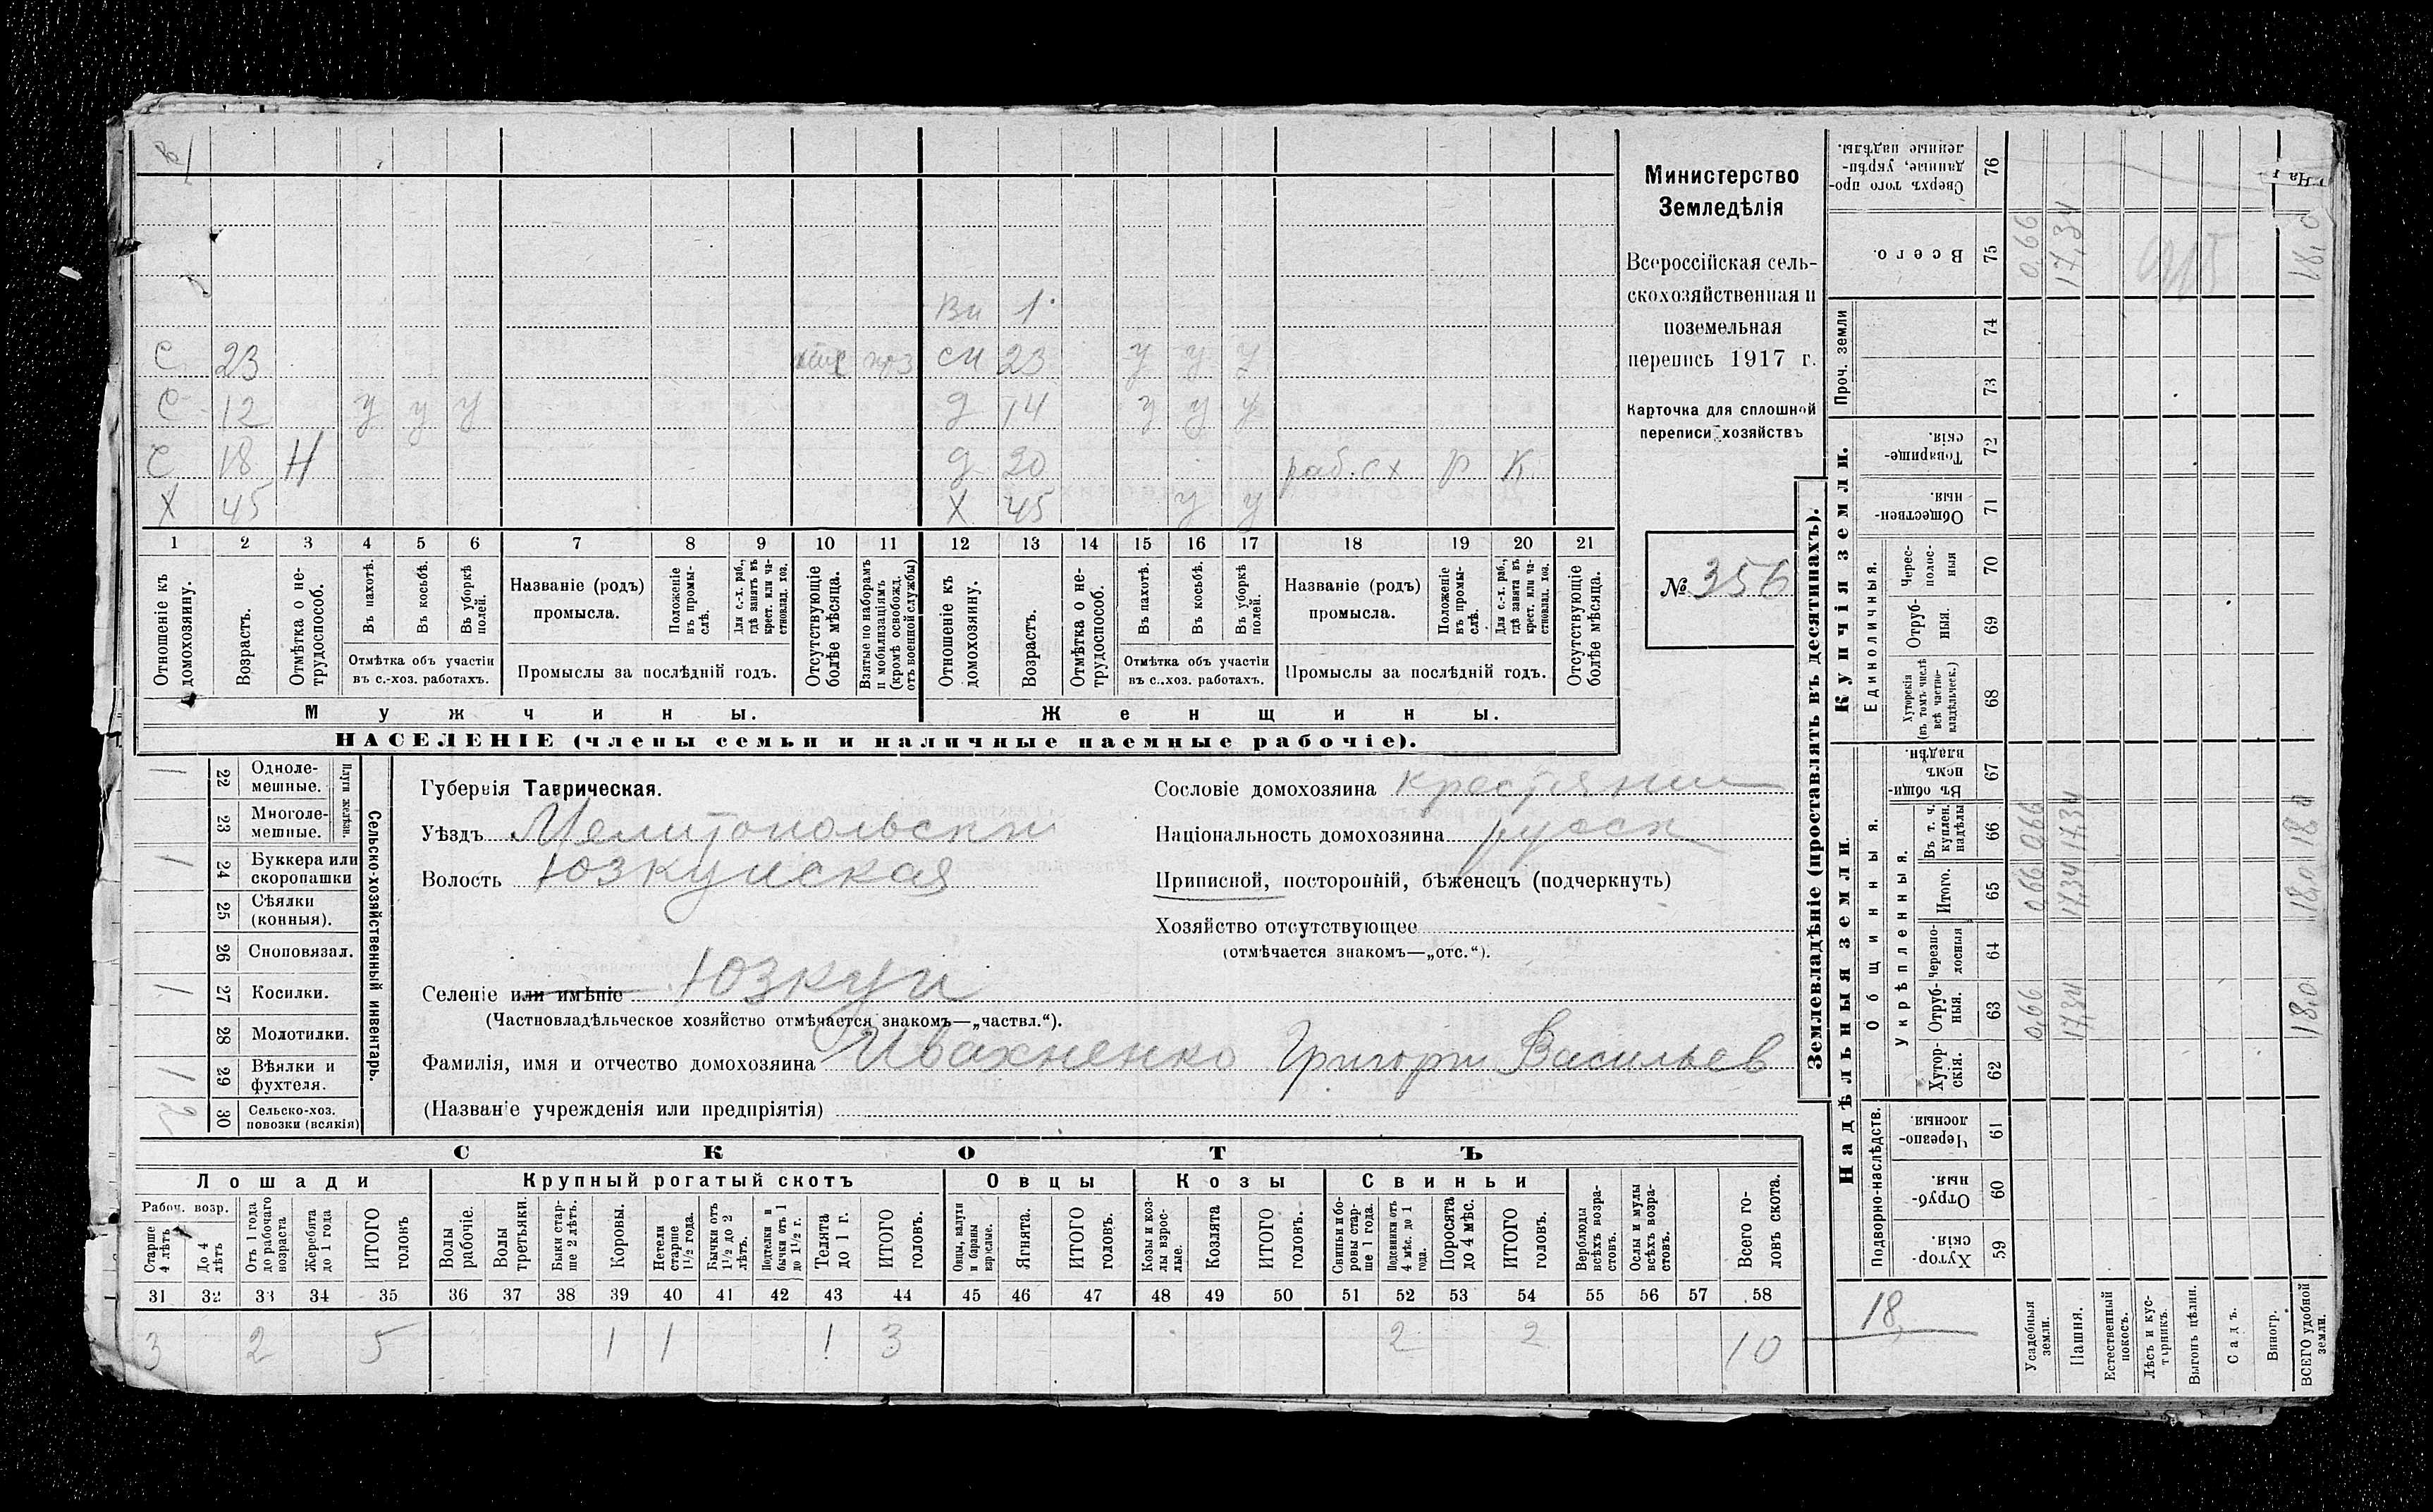 Вн 1
С 23 см 23 у у у
С 12 у у у д 14 у у у
С 18 Н д 20 раб. сх Р К
Х 45 Х 45 у у
1 2 3 4 5 6 7 8 9 10 11 12 13 14 15 16 17 18 19 20 21
Отношеніе къ домохозяину.
Возрастъ.
Отмѣтка о не-трудоспособ.
Въ пахотѣ.
Въ косьбѣ.
Въ уборкѣ полей.
Отмѣтка объ участіи
въ с.-хоз. работахъ.
Названіе (родъ)
промысла.
Положеніе въ промы-слѣ.
Для с.-х. раб., гдѣ занятъ въ крест. или ча-стновлад. хоз.
Промыслы за послѣдній годъ.
Отсутствующіе болѣе мѣсяца.
Взятые по наборамъ и мобилизаціямъ (кромѣ освобожд. отъ военной службы)
Отношеніе къ домохозяину.
Возрастъ.
Отмѣтка о не-трудоспособ.
Въ пахотѣ.
Въ косьбѣ.
Въ уборкѣ полей.
Отмѣтка объ участіи
въ с.-хоз. работахъ.
Названіе (родъ)
промысла.
Положеніе въ промы-слѣ.
Для с.-х. раб., гдѣ занята въ крест. или ча-стновлад. хоз.
Промыслы за послѣдній годъ.
Отсутствующіе болѣе мѣсяца.
Мужчины.
Женщины.
НАСЕЛЕНІЕ (члены семьи и наличные наемные рабочіе).
Министерство
Земледѣлія
Всероссійская сель-
скохозяйственная и
поземельная
перепись 1917 г.
Карточка для сплошной
переписи хозяйствъ
№ 356
Сельско-хозяйственный инвентарь.
Плуги желѣзн.
1 22 Однолемешные.
23 Многолемешные.
1 24 Буккера или скоропашки
25 Сѣялки (конныя).
26 Сноповязал.
1 27 Косилки.
28 Молотилки.
1 29 Вѣялки и фухтеля.
2 30 Сельско-хоз. повозки (всякія)
Губернія Таврическая.
Уѣздъ Мелитопольскій
Волость Юзкуйская
Селеніе или имѣніе Юзкуи
(Частновладѣльческое хозяйство отмѣчается знакомъ—„частвл.“).
Фамилія, имя и отчество домохозяина Ивахненко Григори Васильев
(Названіе учрежденія или предпріятія)
Сословіе домохозяина крестянин
Національность домохозяина русск
Приписной, посторонній, бѣженецъ (подчеркнуть)
Хозяйство отсутствующее
(отмѣчается знакомъ—„отс.“).
СКОТЪ
Лошади Крупный рогатый скотъ Овцы Козы Свиньи
Рабоч. возр.
Старше 4 лѣтъ
До 4 лѣтъ
Отъ 1 года до рабочаго возраста
Жеребята до 1 года
ИТОГО головъ
Волы рабочіе.
Волы третьяки.
Быки стар-ше 2 лѣтъ.
Коровы.
Нетели старше 1½ года.
Бычки отъ 1½ до 2 лѣтъ.
Подтелки и бычки отъ 1 до 1½ г.
Телята до 1 г.
ИТОГО головъ.
Овцы, валухи и бараны взрослые.
Ягнята.
ИТОГО головъ.
Козы и коз-лы взрос-лые.
Козлята
ИТОГО головъ.
Свиньи и бо-ровы стар-ше 1 года.
Подсвинки отъ 4 мѣс. до 1 года.
Поросята до 4 мѣс.
ИТОГО головъ.
Верблюды всѣхъ возра-стовъ.
Ослы и мулы всѣхъ возра-стовъ.
Всего го-ловъ скота.
31 32 33 34 35 36 37 38 39 40 41 42 43 44 45 46 47 48 49 50 51 52 53 54 55 56 57 58
3 2 5 1 1 1 3 2 2 10
Землевладѣніе (проставлять въ десятинахъ).
Надѣльныя земли.
Купчія земли.
Проч. земли
Подворно-наслѣдств.
Общинныя.
Укрѣпленныя.
Единоличныя.
Сверхъ того про-данные, укрѣп-ленные надѣлы. 76
Всего. 75 0,66 17,34 18,0
74
73
Товарище-скія. 72
Обществен-ныя. 71
Черес-полос-ныя 70
Отруб-ныя. 69
Хуторскія (въ томъ числѣ всѣ частно-владѣльческ.) 68
Въ общин-номъ владѣн. 67
Въ т. ч. куплен. надѣлы 66 0,66 17,34 18,0
Итого. 65 0,66 17,34 18,0
Черезпо-лосныя 64
Отруб-ныя. 63 0,66 17,34 18,0
Хутор-скія. 62
Черезпо-лосныя 61
Отруб-ныя. 60
Хутор-скія. 59
18
Усадебныя земли.
Пашня.
Естественный покосъ.
Лѣсъ и кус-тарникъ.
Выгонъ цѣлин.
Садъ.
Виногр.
ВСЕГО удобной земли.